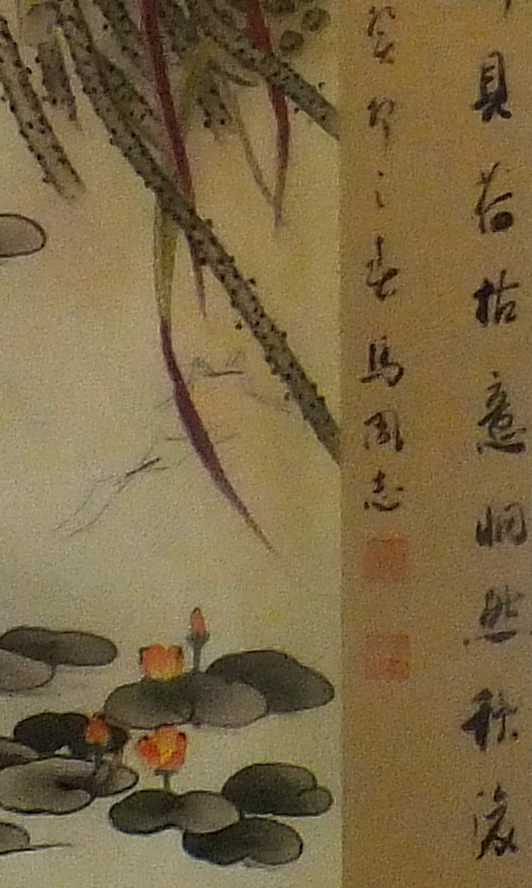 見荷枯意惘然秋
癸卯之春馬國志